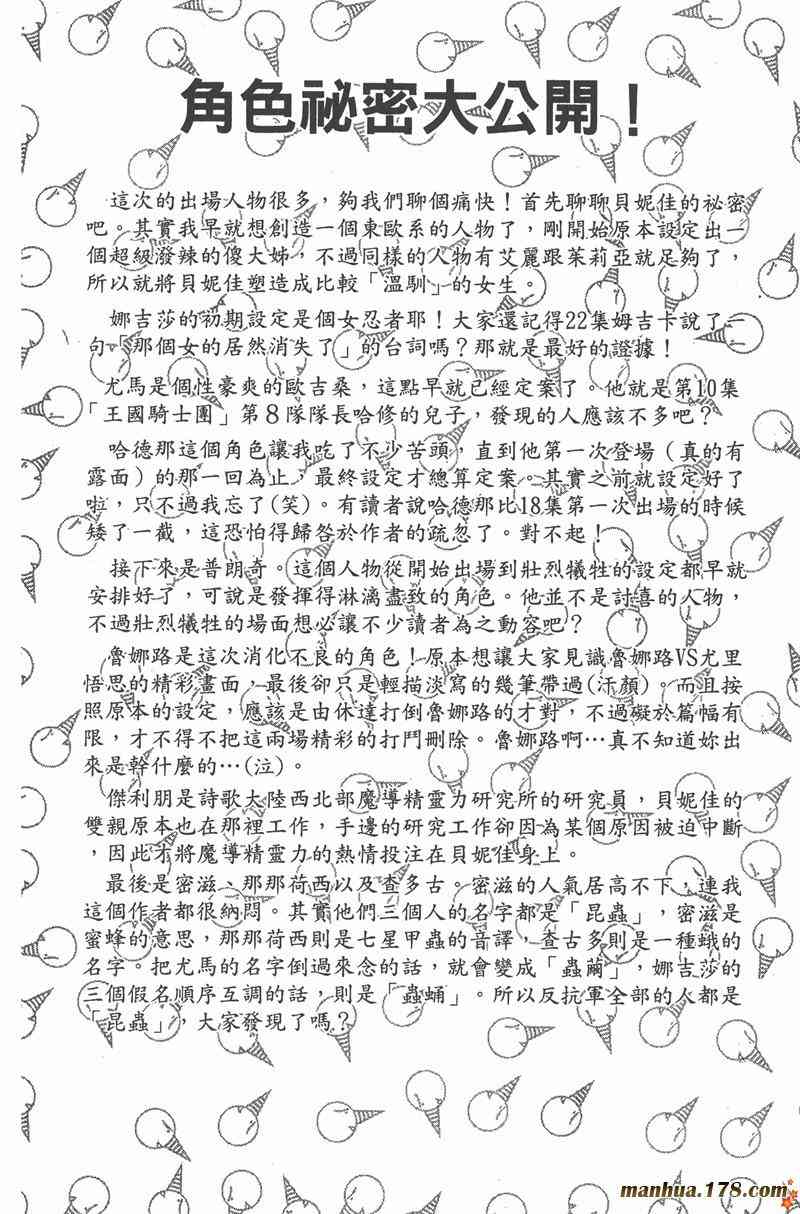 角色祕密大公開！
這次的出場人物很多，夠我們聊個痛快！首先聊聊貝妮佳的祕密
吧。其實我早就想創造一個東歐系的人物了，剛開始原本設定出一
個超級潑辣的傻大姊，不過同樣的人物有艾麗跟茱莉亞就足夠了，
所以就將貝妮佳塑造成比較「溫馴」的女生。
娜吉莎的初期設定是個女忍者耶！大家還記得22集姆吉卡說了一
句「那個女的居然消失了」的台詞嗎？那就是最好的證據！
尤馬是個性豪爽的歐吉桑，這點早就已經定案了。他就是第10集
「王國騎士團」第８隊隊長哈修的兒子，發現的人應該不多吧？
哈德那這個角色讓我吃了不少苦頭，直到他第一次登場（真的有
露面）的那一回為止，最終設定才總算定案。其實之前就設定好了
啦，只不過我忘了(笑)。有讀者說哈德那比18集第一次出場的時候
矮了一截，這恐怕得歸咎於作者的疏忽了。對不起！
接下來是普朗奇。這個人物從開始出場到壯烈犧牲的設定都早就
安排好了，可說是發揮得淋漓盡致的角色。他並不是討喜的人物，
不過壯烈犧牲的場面想必讓不少讀者為之動容吧？
魯娜路是這次消化不良的角色！原本想讓大家見識魯娜路VS尤里
悟思的精彩畫面，最後卻只是輕描淡寫的幾筆帶過(汗顏)。而且按
照原本的設定，應該是由休達打倒魯娜路的才對，不過礙於篇幅有
限，才不得不把這兩場精彩的打鬥刪除。魯娜路啊…真不知道妳出
來是幹什麼的…(泣)。
傑利朋是詩歌大陸西北部魔導精靈力研究所的研究員，貝妮佳的
雙親原本也在那裡工作，手邊的研究工作卻因為某個原因被迫中斷
，因此才將魔導精靈力的熱情投注在貝妮佳身上。
最後是密滋、那那荷西以及查多古。密滋的人氣居高不下，連我
這個作者都很納悶。其實他們三個人的名字都是「昆蟲」，密滋是
蜜蜂的意思，那那荷西則是七星甲蟲的音譯，查古多則是一種蛾的
名字。把尤馬的名字倒過來念的話，就會變成「蟲繭」，娜吉莎的
三個假名順序互調的話，則是「蟲蛹」。所以反抗軍全部的人都是
「昆蟲」，大家發現了嗎？
manhua.178.com